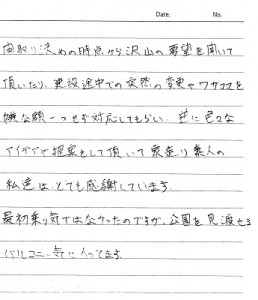 Date. No.
間取り決めの時点から沢山の要望を聞いて
頂いたり、建設途中での突然の変更やワガママを
嫌な顔一つせず対応してもらい、逆に色々な
アイデアや提案をして頂いて家造り素人の
私達は、とても感謝しています。
最初乗り気ではなかったのですが、公園を見渡せる
バルコニー気に入ってます。